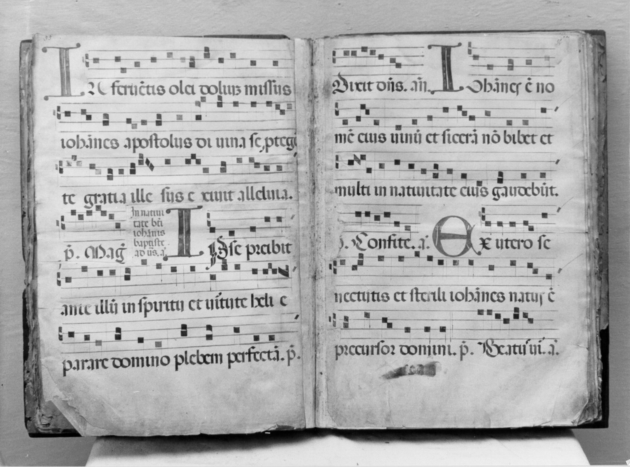 In feruētis olei doliuȝ missus
iohānes apostolus di uina se ptegē
te gratia ille sus e xiuit alleluia.
p̄. Maḡ
In natiui
tate bti
iohānis
baptiste
ad us. a̅
Ipse preibit
ante illū in spiritu et uirtute heli e
parare domino plebem perfectā. p̄.
Dixit dn̄s. an̄. Iohānes ē no
mē eius uinū et sicera nō bibet et
multi in natiuitate eius gaudebūt.
p̄. Confite. a̅. Ex utero se
nectutis et sterili iohānes natus ē
precursor domini. p̄. Beatus ui. a̅.